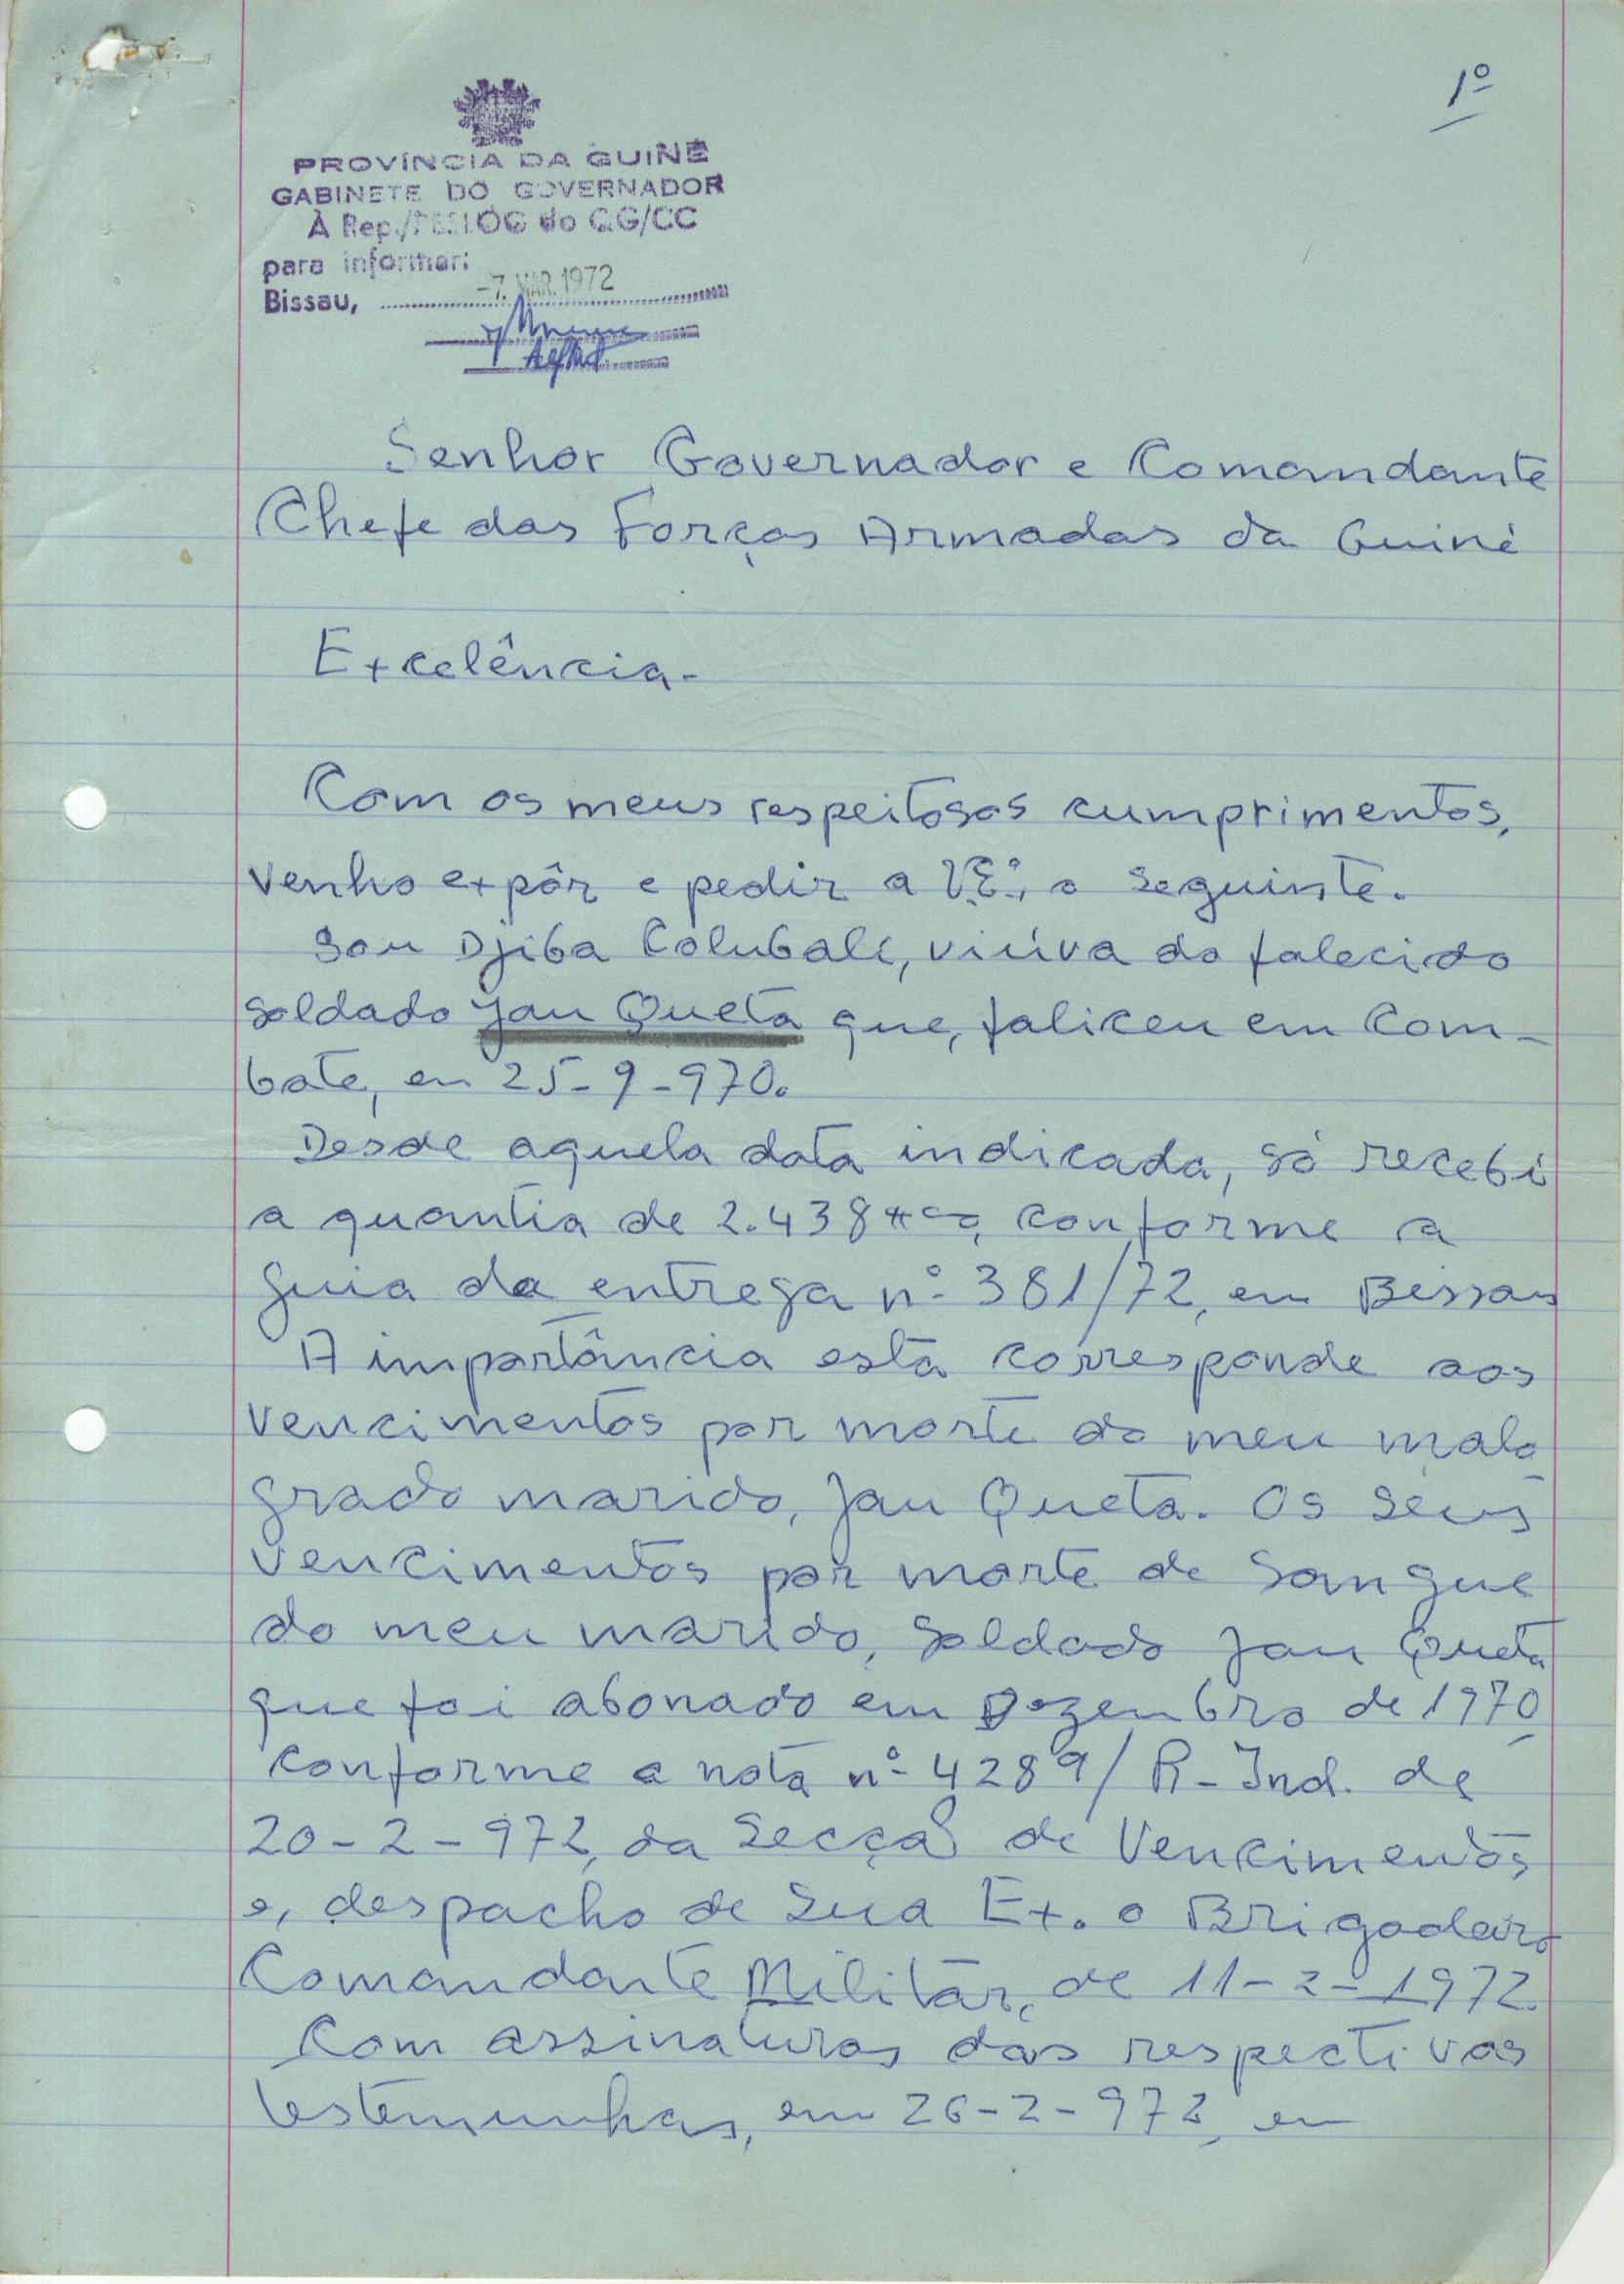 1º
PROVÍNCIA DA GUINÉ
GABINETE DO GOVERNADOR
À Rep./PESLOG do QG/CC
para informar:
Bissau, -7. MAR. 1972
Senhor Governador e Comandante
Chefe das Forças Armadas da Guiné
Excelência-
Com os meus respeitosos cumprimentos,
venho expôr e pedir a V.Eª., o seguinte.
Sou Djiba Colubali, viúva do falecido
soldado Jau Quetá que, faliceu em com-
bate, em 25-9-970.
Desde aquela data indicada, só recebi
a quantia de 2.438$00, conforme a
guia da entrega nº 381/72, em Bissau
A importância esta corresponde aos
vencimentos por morte do meu malo
grado marido, Jau Quetá. Os seus
vencimentos por morte de sangue
do meu marido, soldado Jau Quetá
que foi abonado em Dezembro de 1970
conforme a nota nº 4289/R-Ind. de
20-2-972, da Secção de Vencimentos
e, despacho de Sua Ex. o Brigadeiro
Comandante Militar, de 11-2-1972.
Com assinaturas das respectivas
testemunhas, em 26-2-972, em